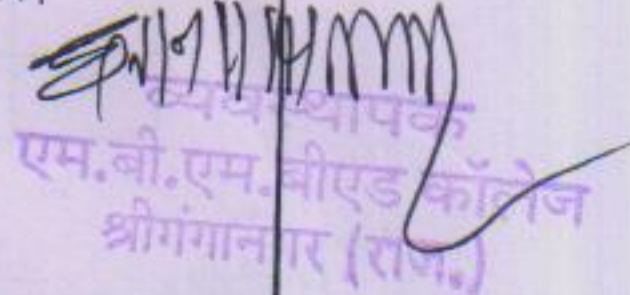 व्यवस्थापक
एम.बी.एम.बीएड कॉलेज
श्रीगंगानगर (राज.)